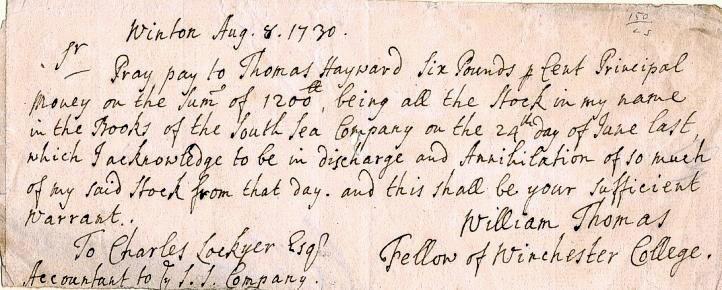 Winton Aug. 8. 1730.
150
25
Sr
Pray pay to Thomas Hayward Six Pounds p Cent Principal
Money on the Sum of 1200ll, being all the Stock in my name
in the Books of the South Sea Company on the 24th day of June last,
which I acknowledge to be in discharge and Annihilation of so much
of my said Stock from that day. and this shall be your sufficient
Warrant.
William Thomas
Fellow of Winchester College.
To Charles Lockyer Esqr
Accountant to ye S. S. Company.